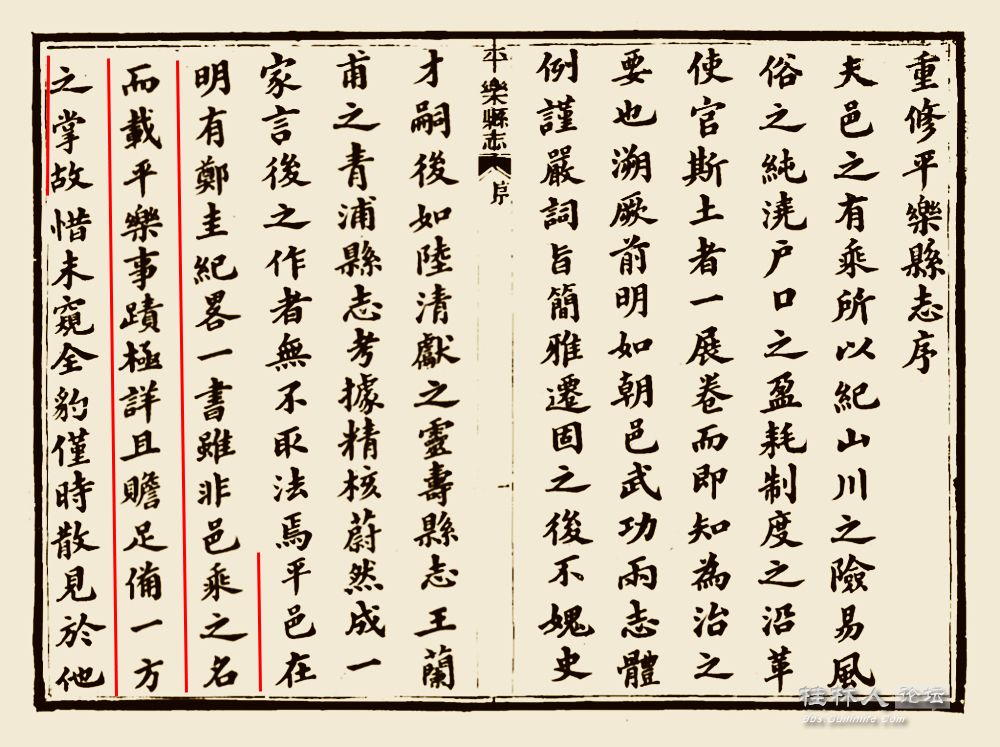 重修平樂縣志序
夫邑之有乘所以紀山川之險易風
俗之純澆戶口之盈耗制度之沿革
使官斯土者一展卷而即知為治之
要也溯厥前明如朝邑武功兩志體
例謹嚴詞旨簡雅遷固之後不媿史
平樂縣志 序 一
才嗣後如陸清獻之靈壽縣志王蘭
甫之青浦縣志考據精核蔚然成一
家言後之作者無不取法焉平邑在
明有鄭圭紀畧一書雖非邑乘之名
而載平樂事蹟極詳且贍足備一方
之掌故惜未窺全豹僅時散見於他
桂林人论坛
bbs.Guilinlife.Com